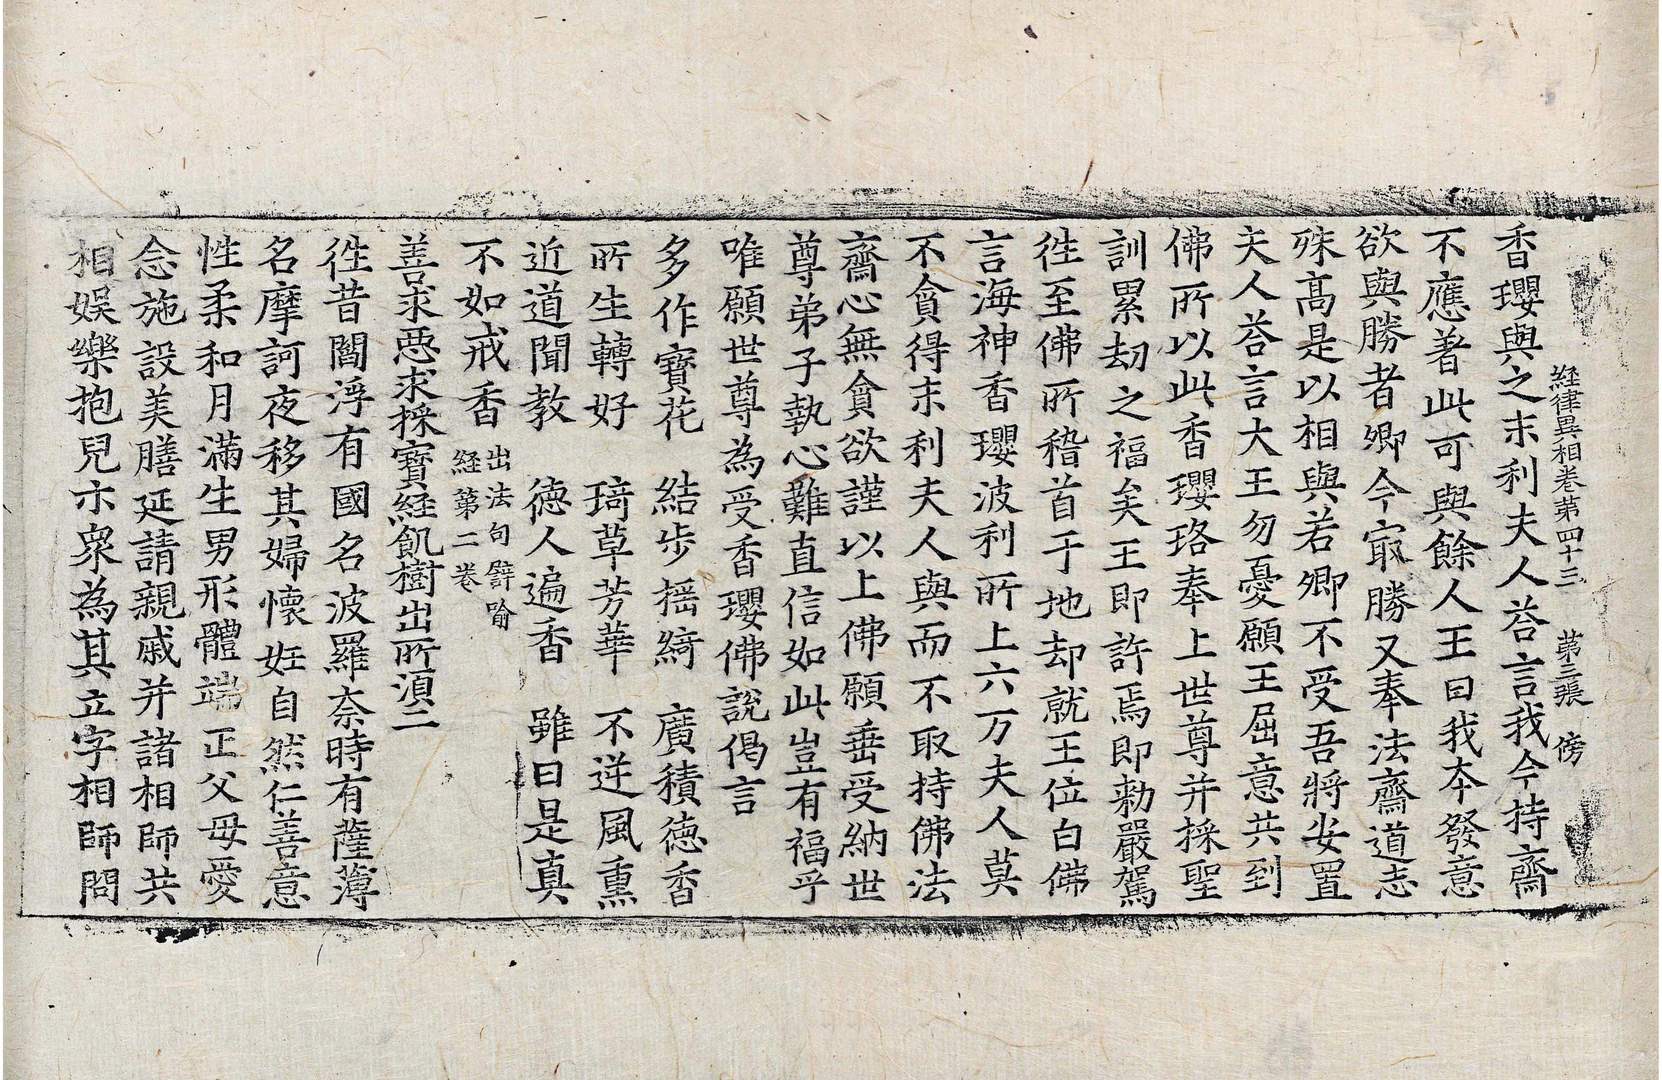 経律異相卷第四十三 第三張 傍
香瓔與之末利夫人荅言我今持齋
不應著此可與餘人王曰我本發意
欲與勝者卿今㝡勝又奉法齋道志
殊髙是以相與若卿不受吾將安置
夫人荅言大王勿憂願王屈意共到
佛所以此香瓔珞奉上世尊并採聖
訓累劫之福矣王即許焉即勑嚴駕
徃至佛所稽首于地却就王位白佛
言海神香瓔波利所上六万夫人莫
不貪得末利夫人與而不取持佛法
齋心無貪欲謹以上佛願垂受納世
尊弟子執心難直信如此豈有福乎
唯願世尊為受香瓔佛說偈言
多作寶花 結步揺綺 廣積德香
所生轉好 琦草芳華 不逆風熏
近道聞教 德人遍香 雖曰是真
不如戒香 出法句譬喻
経第二卷
善求惡求採寶経飢樹出所湏二
徃昔閻浮有國名波羅奈時有薩薄
名摩訶夜移其婦懷妊自然仁善意
性柔和月滿生男形體端正父母愛
念施設美膳延請親戚并諸相師共
相娛樂抱兒示衆為其立字相師問